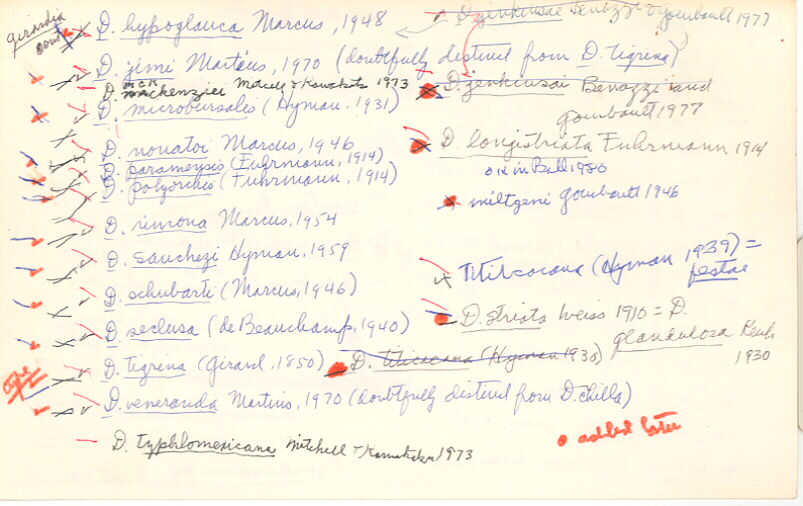 girardia
D. hypoglauca Marcus, 1948
D. jenkinsae Benazzi & Gourbault 1977
D. jimi Martins, 1970 (doubtfully distinct from D. tigrina)
D. mckenziei Mitchell & Kawakatsu 1973
D. microbursalis (Hyman, 1931)
D. jenkinsai Benazzi and
Gourbault 1977
D. nonatoi Marcus, 1946
D. longistriata Fuhrmann 1914
D. paramensis (Fuhrmann, 1914)
ok in Ball 1980
D. polyorchis (Fuhrmann, 1914)
miltgeni Gourbault 1946
D. rincona Marcus, 1954
D. sanchezi Hyman, 1959
Titicacana (Hyman 1939) =
festae
D. schubarti (Marcus, 1946)
D. striata Weiss 1910 = D.
D. seclusa (de Beauchamp, 1940)
glandulosa Kenk
1930
D. tigrina (Girard, 1850)
D. titicacana (Hyman 1939)
type
D. veneranda Martins, 1970 (doubtfully distinct from D. chilla)
added later
D. typhlomexicana Mitchell & Kawakatsu 1973